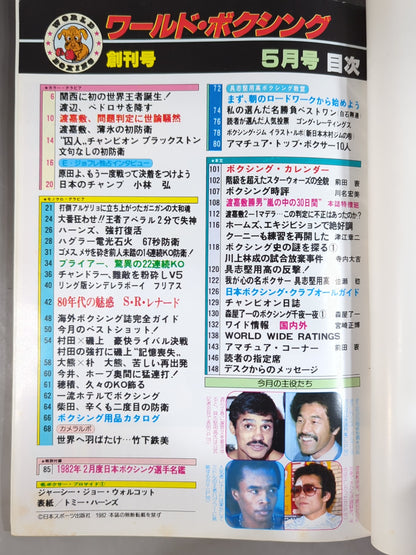 WORLD BOXING
ワールド・ボクシング
創刊号
5月号 目次
●カラー・グラビア
6 関西に初の世界王者誕生!
渡辺、ペドロサを降す
10 渡嘉敷、問題判定に世論騒然
渡嘉敷、薄氷の初防衛
14 "囚人"チャンピオン ブラックストン
文句なしの初防衛
16 E・ジョフレ独占インタビュー
原田よ、もう一度戦って決着をつけよう
20 日本のチャンプ 小林 弘
●モノクロ・グラビア
21 打倒アルゲリョに立ち上がったガニガンの大和魂
24 大番狂わせ!王者アベラル2分で失神
26 ハーンズ、強打復活
28 ハグラー電光石火 67秒防衛
31 ゴメス、メサを砕き前人未踏の14連続KO防衛!
34 プライアー、驚異の22連続KO
36 チャンドラー、難敵を粉砕しV5
40 リング版シンデレラボーイ フリアス
42 80年代の魅惑 S・R・レナード
48 海外ボクシング誌完全ガイド
50 今月のベストショット!
54 村田×磯上 豪快ライバル決戦
村田の強打に磯上"記憶喪失"
58 大熊×朴 大熊、苦しい再出発
60 今井、ホープ奥間に猛連打!
61 穂積、久々のKO飾る
62 一流ホテルでボクシング
64 柴田、辛くも二度目の防衛
66 ボクシング用品カタログ
68 カメラルポ
世界へ羽ばたけ…竹下鉄美
●特別付録
85 1982年2月度日本ボクシング選手名鑑
●ボクサー・ブロマイド①
ジャーシー・ジョー・ウォルコット
表紙/トミー・ハーンズ
©日本スポーツ出版社 1982 本誌の無断転載を禁ず
72 具志堅用高ボクシング教室
まず、朝のロードワークから始めよう
74 私の選んだ名勝負ベストワン
76 読者が選んだ人気投票 ゴング・レーティングス
78 ボクシング・ジム イラスト・ルポ
80 アマチュア・トップ・ボクサー10人
●本文
101 ボクシング・カレンダー
102 階級を超えたスターウォーズの全貌 前田 衷
107 ボクシング時評 川名宏美
108 渡嘉敷勝男"嵐の中の30日間" 本誌特捜班
112 渡嘉敷2−1マデラ…この判定に不正はあったのか?
116 ホームズ、エキジビションで絶好調
クーニーも練習を再開した 津江章二
118 ボクシング史の謎を探る①
川上林成の試合放棄事件 寺内大吉
120 具志堅用高の反撃!
122 我が心の名ボクサー 具志堅用高 佐瀬 稔
126 日本ボクシング・クラブオールガイド
129 チャンピオン日誌
130 森屋了一のボクシング千夜一夜① 森屋了一
132 ワイド情報 国内外 宮崎正博
138 WORLD WIDE RATINGS
143 アマチュア・コーナー 前田 衷
146 読者の指定席
148 デスクからのメッセージ
今月の主役たち